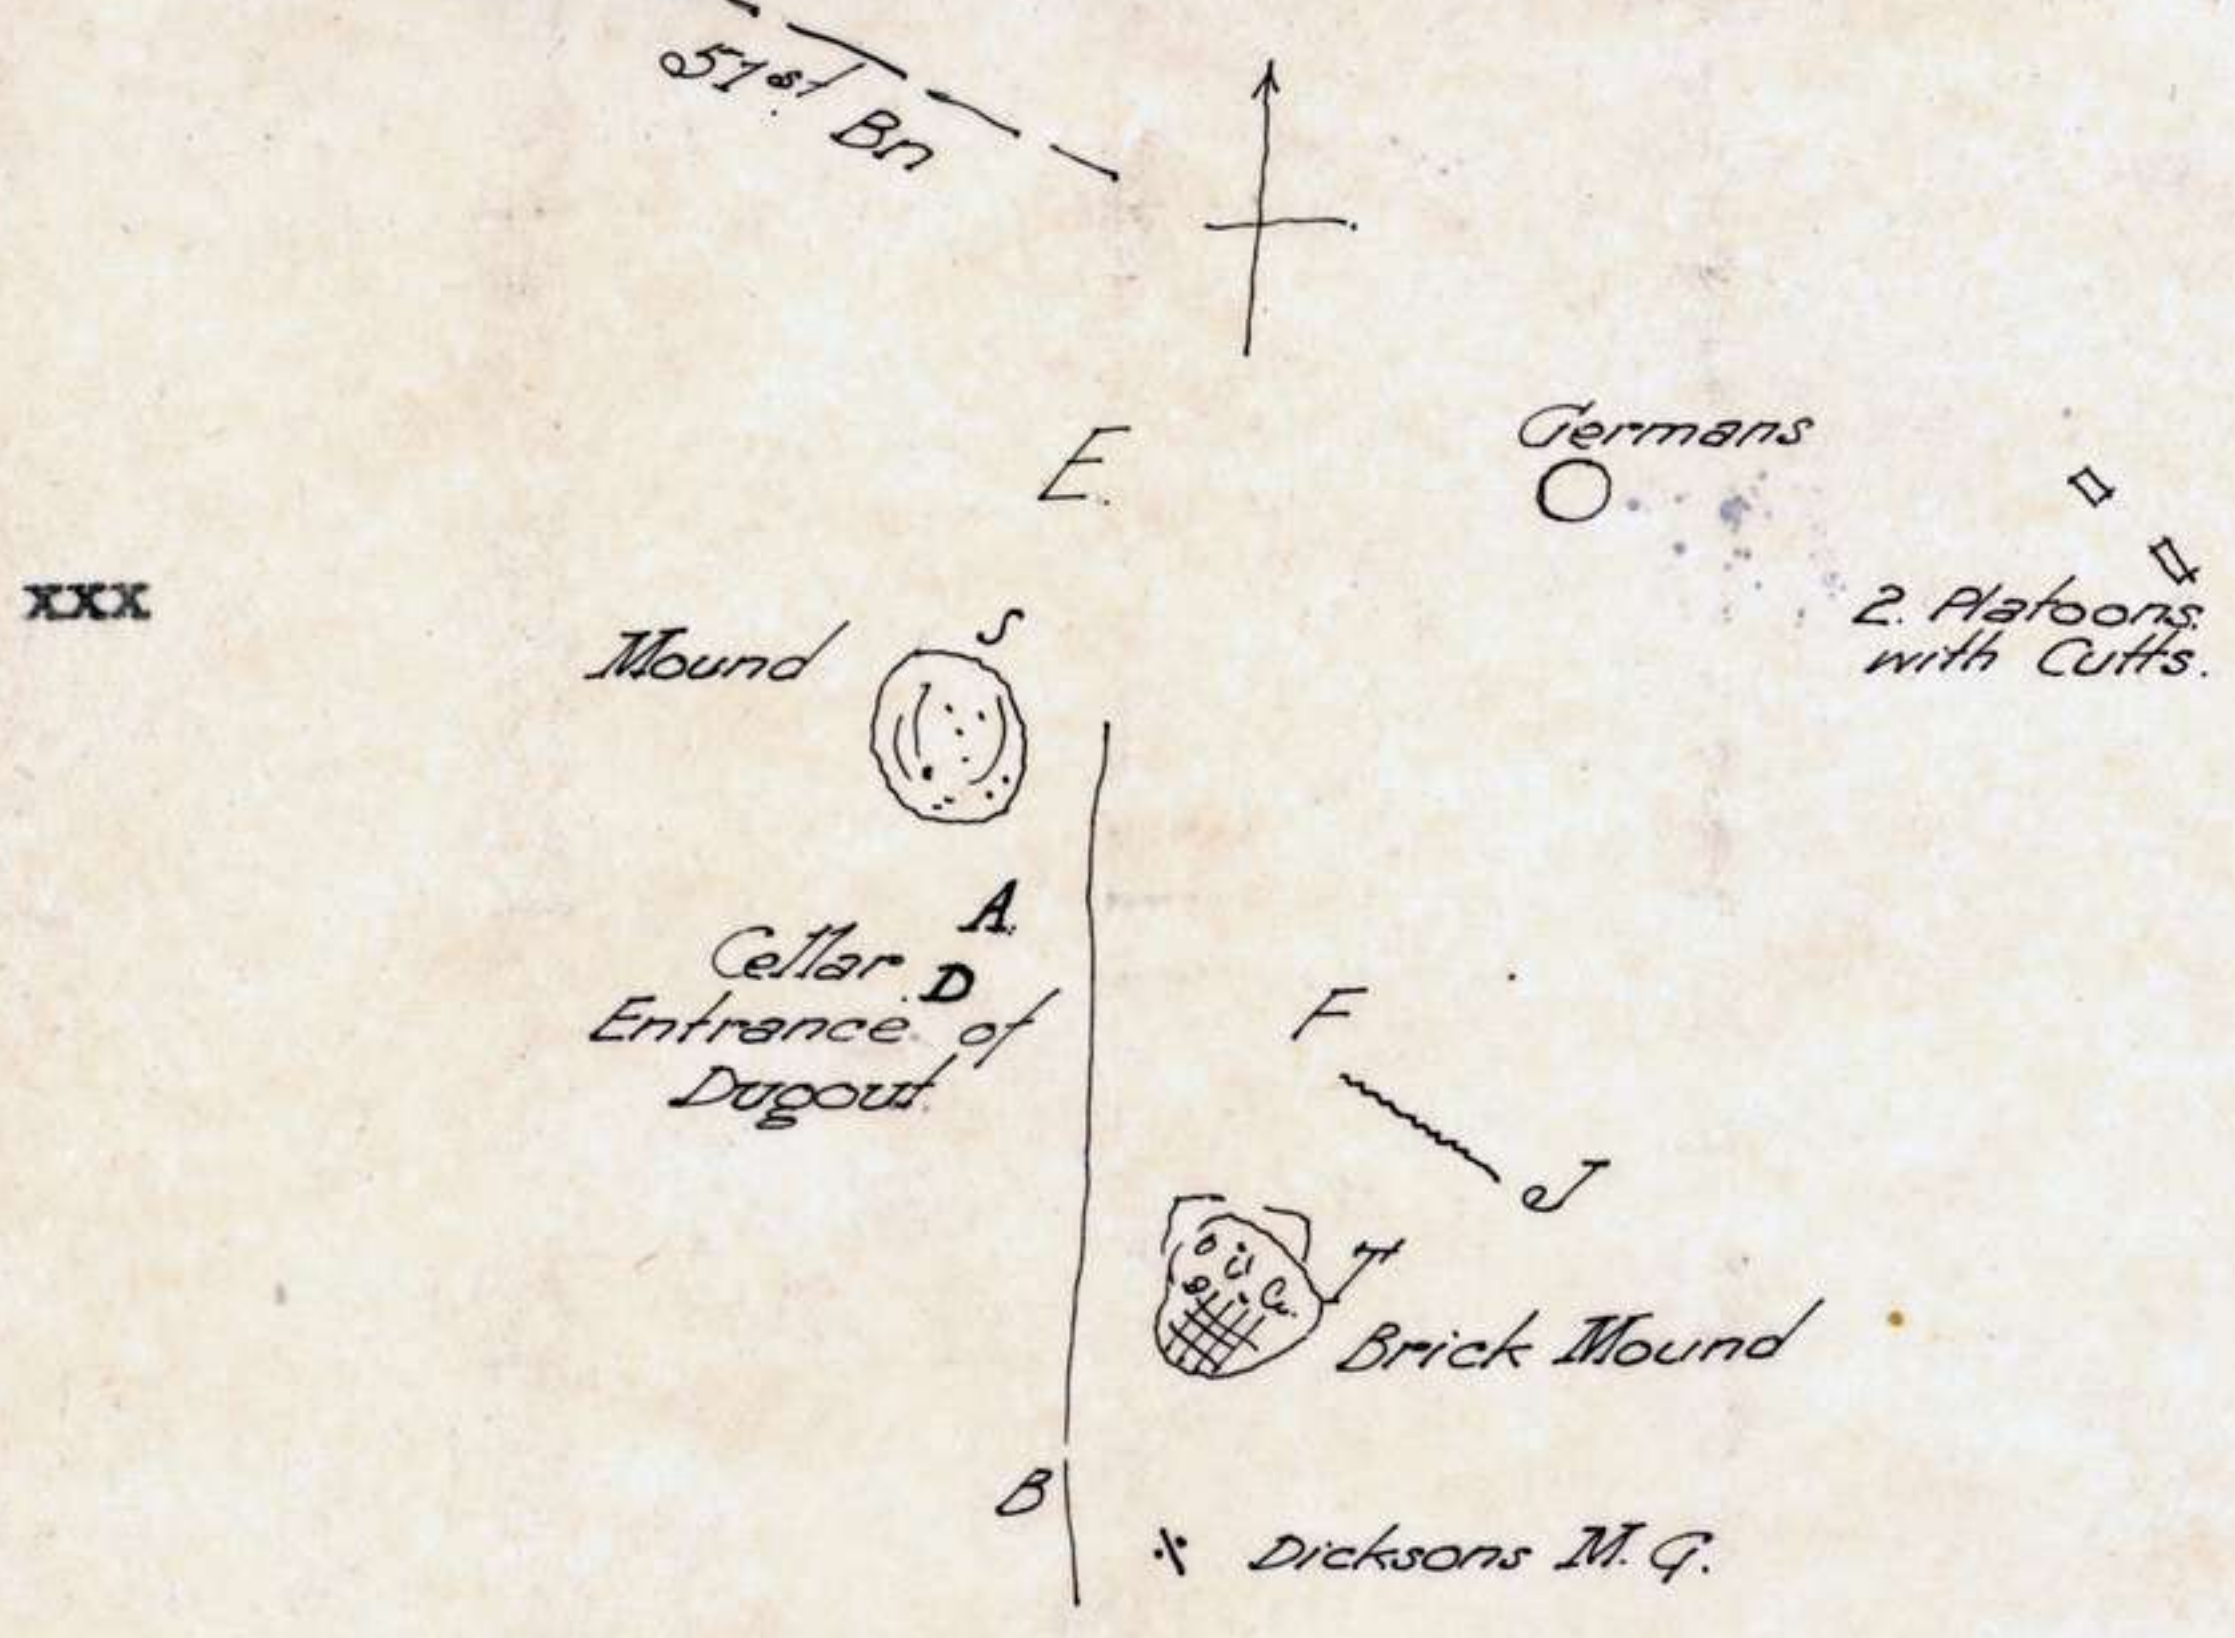 51st Bn
E.
Germans
xxx
2. Platoons.
with Cutts.
S
Mound
A.
Cellar. D
Entrance of
Dugout.
F
J
T
Brick Mound
B
Dicksons M. G.